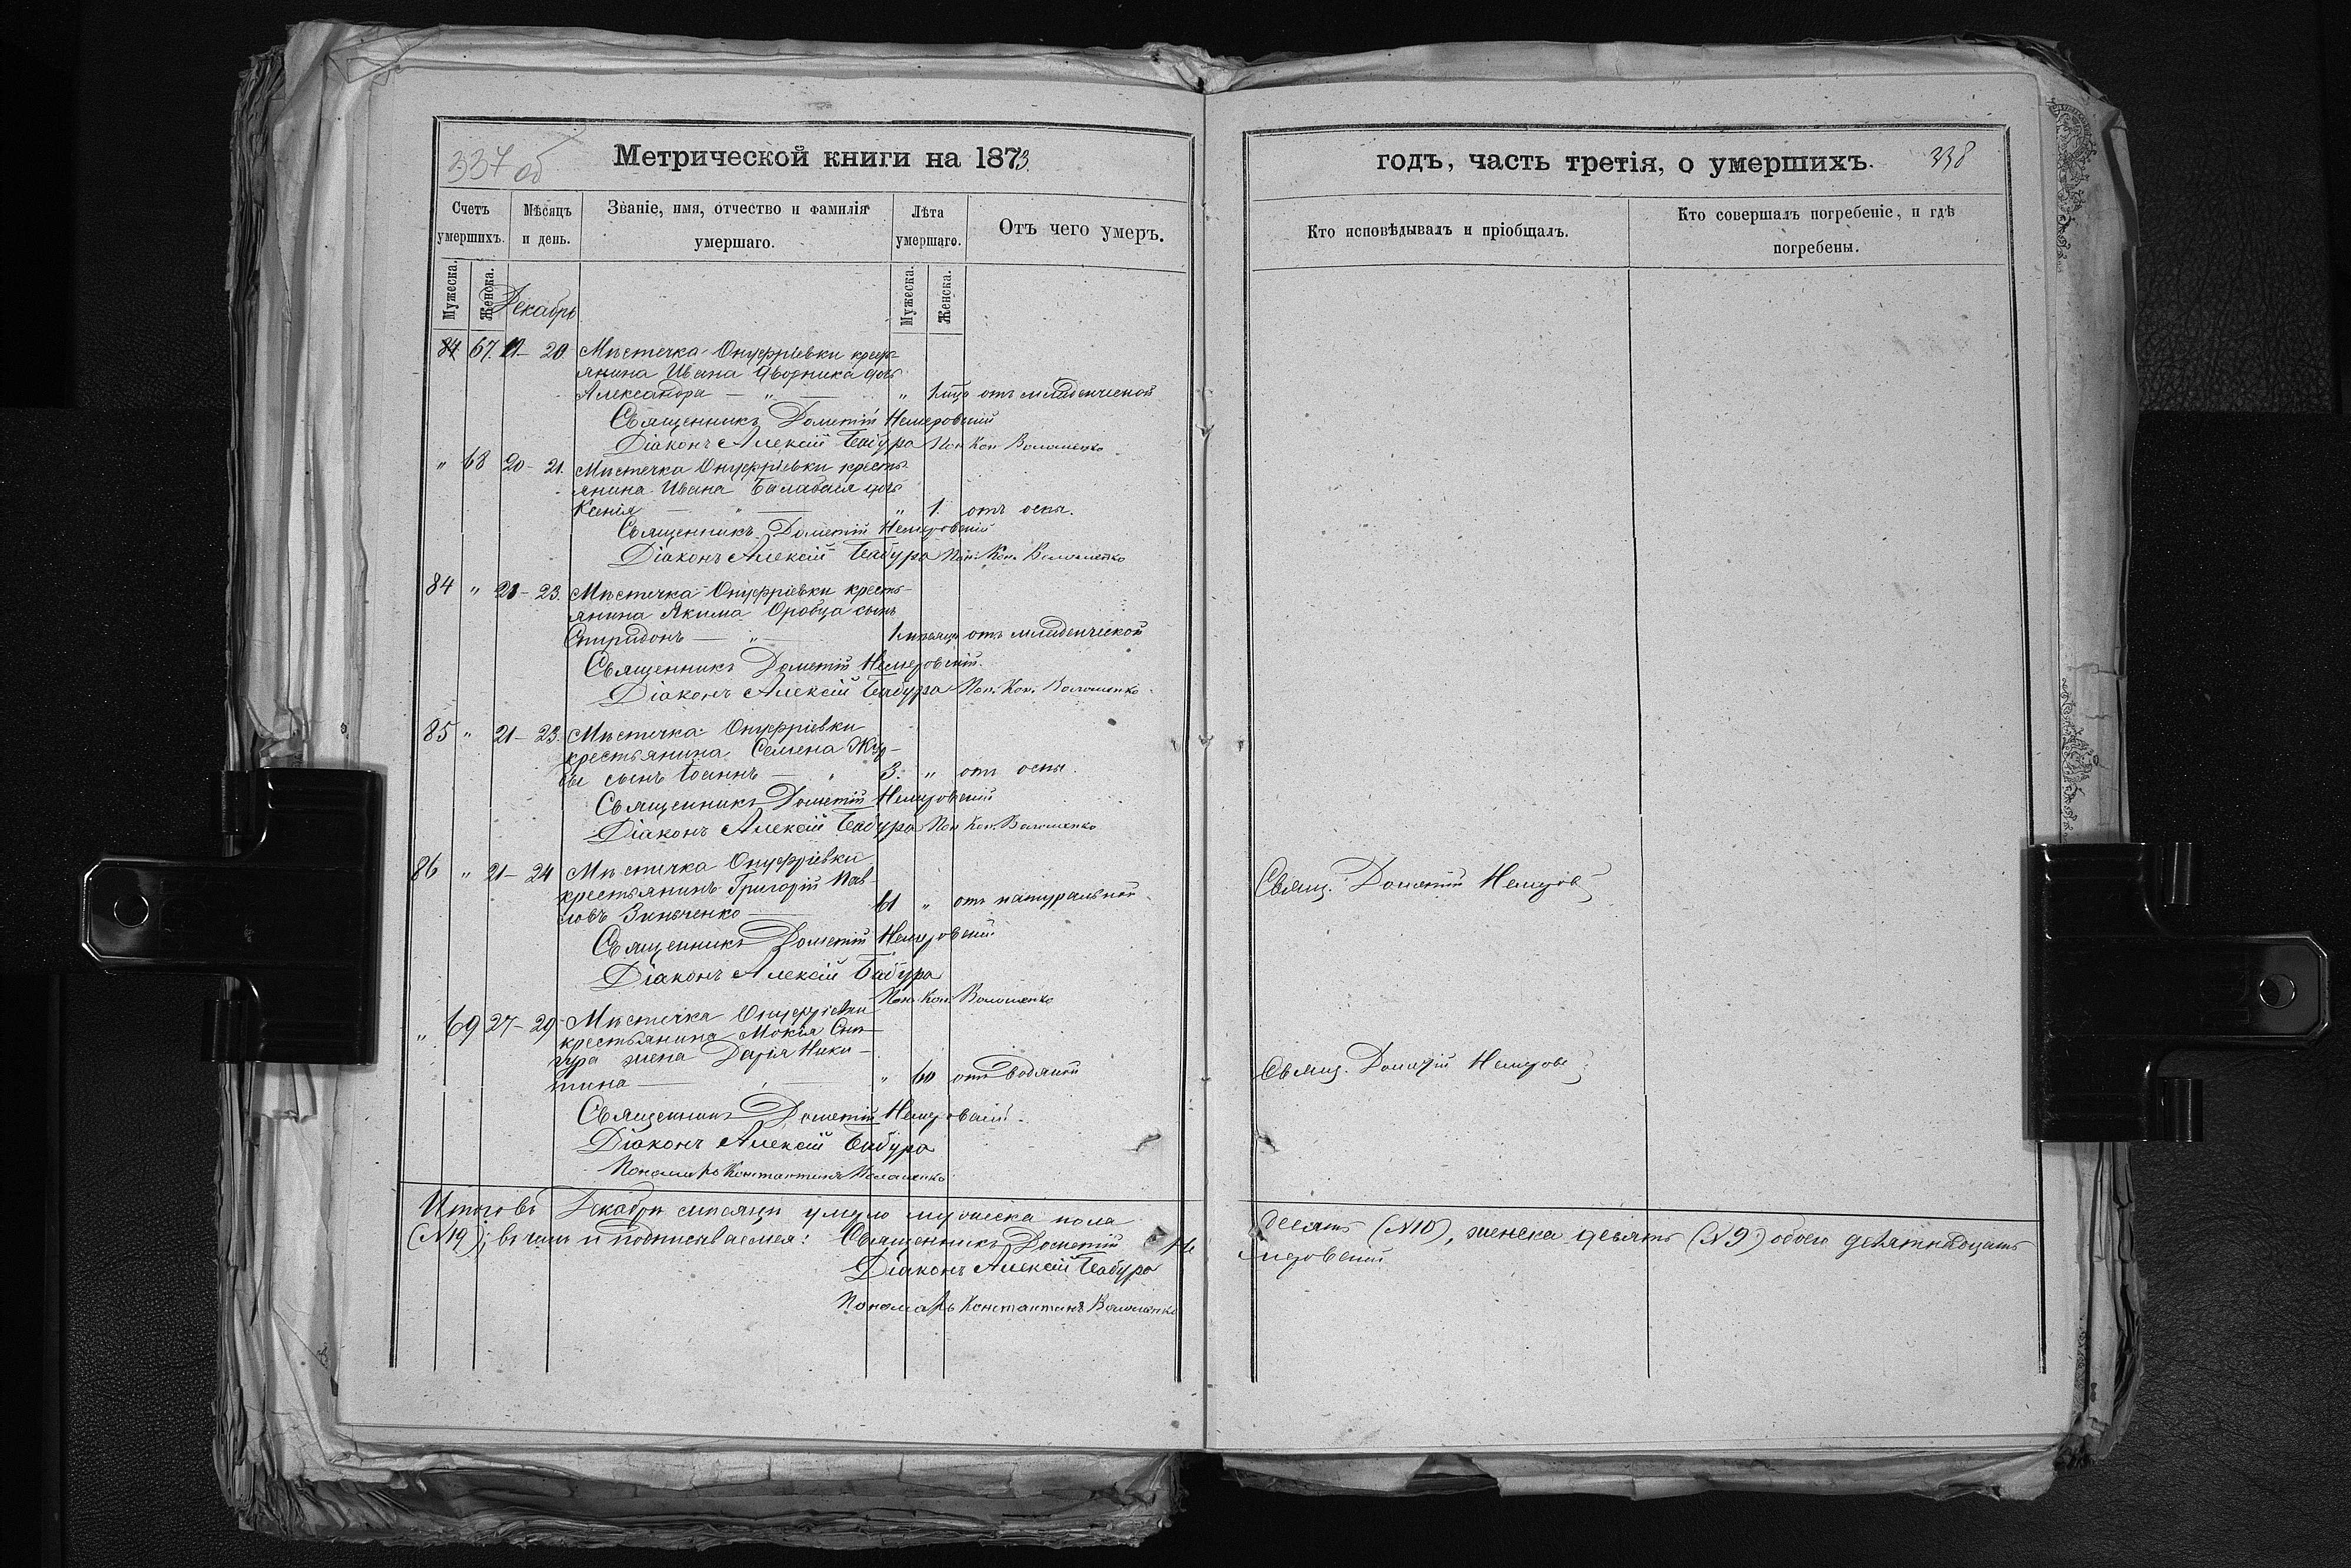 337 об
Метрической книги на 1873.
годъ, часть третія, о умершихъ.
338
Счетъ умершихъ.
Мѣсяцъ и день.
Званіе, имя, отчество и фамилія умершаго.
Лѣта умершаго.
Отъ чего умеръ.
Кто исповѣдывалъ и пріобщалъ.
Кто совершалъ погребеніе, и гдѣ погребены.
Мужеска.
Женска.
Декабрь
Мужеска.
Женска.
84 67. 19– 20 Мѣстечка Онуфріевки кресть
янина Ивана Дворника дочь
Александра — „ — „ отъ младенческой
Священникъ Дометій Немеровскій
Діаконъ Алексій Бабура Пон. Кон. Волошенко
„ 68 20– 21. Мѣстечка Онуфріевки кресть-
янина Ивана Балабая дочь
Ксенія — „ — „ 1. отъ оспы.
Священникъ Дометій Немеровскій
Діаконъ Алексій Бабура Пон. Кон. Волошенко
84 „ 21– 23. Мѣстечка Онуфріевки кресть-
янина Якима Оробца сынъ
Спиридонъ — „ — 1 мѣсяцъ отъ младенческой
Священникъ Дометій Немеровскій.
Діаконъ Алексій Бабура Пон. Кон. Волошенко
85 „ 21– 23. Мѣстечка Онуфріевки
крестьянина Семена
сынъ Іоаннъ — „ 3. „ отъ оспы.
Священникъ Дометій Немеровскій
Діаконъ Алексій Бабура Пон. Кон. Волошенко
86 „ 21– 24 Мѣстечка Онуфріевки
крестьянинъ Григорій Пав-
ловъ Зинченко — 61 „ отъ натуральной
Свящ. Дометій Немеров
Священникъ Дометій Немеровскій
Діаконъ Алексій Бабура
Пон. Кон. Волошенко
„ 69 27– 29 Мѣстечка Онуфріевки
крестьянина Мокія Сни-
гура жена Дарія Ники-
тина — „ — „ 60 отъ водяной
Свящ. Дометій Немеровс
Священникъ Дометій Немеровскій.
Діаконъ Алексій Бабура
Пономарь Константинъ Волошенко
Итого въ Декабрѣ мѣсяцѣ умерло мужеска пола
десять (№10), женска девять (№9) обоего девятнадцать
(№19); въ чемъ и подписываемся: Священникъ Дометій Не
меровскій
Діаконъ Алексій Бабура
Пономарь Константинъ Волошенко